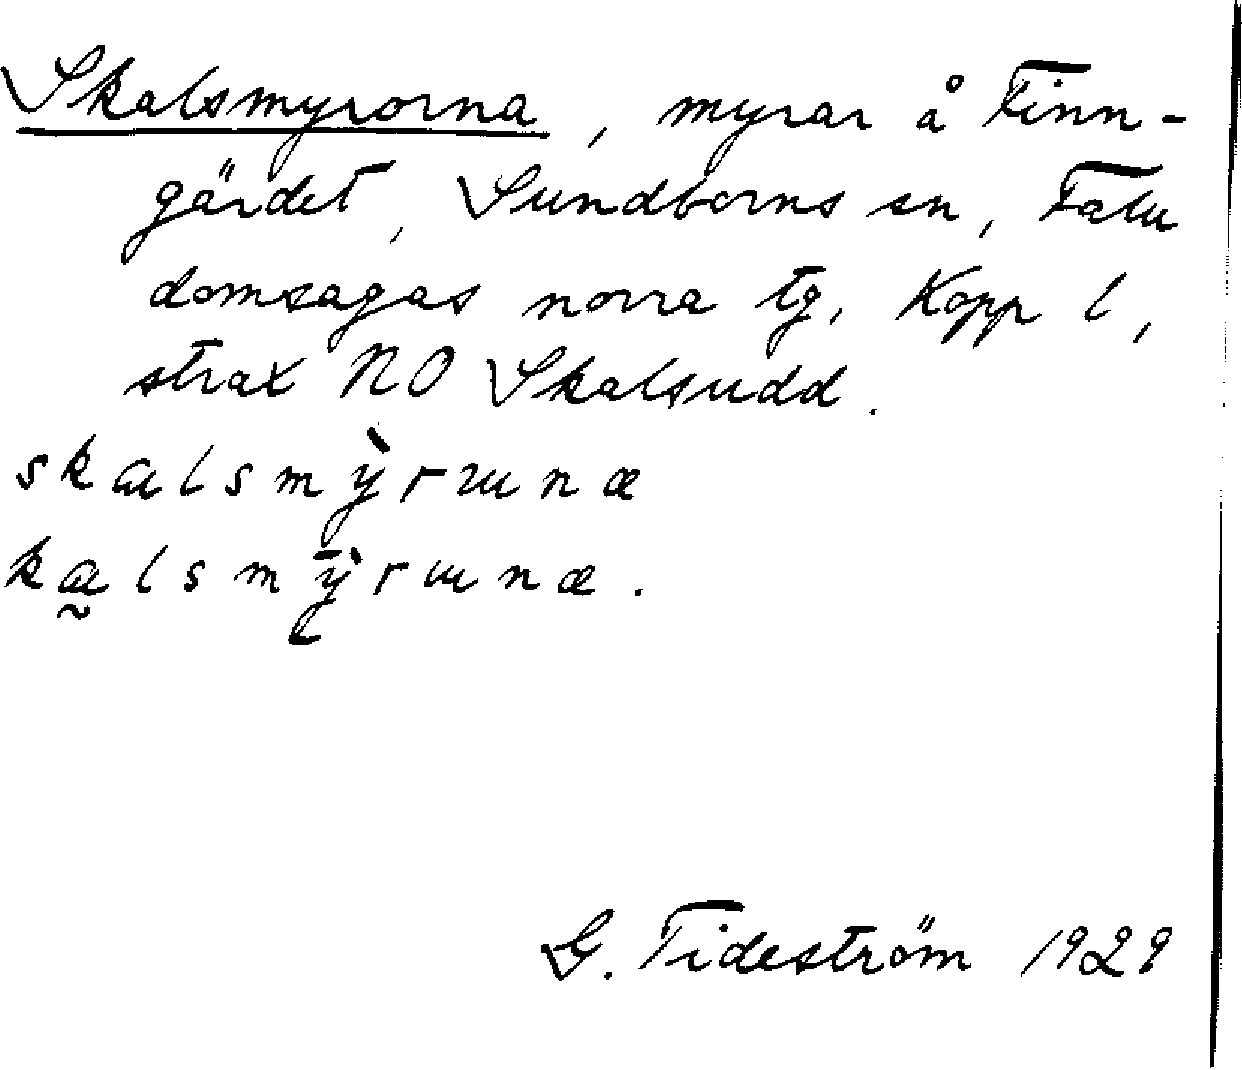 Skalsmyrorna, myrar å Finn-
gärdet, Sundborns sn, Falu
domsagas norra tg, Kopp l,
strax NO Skalsudd.
skalsmỳrɯnæ
ka̰lsmȳ̀rɯnæ.
G. Tideström 1929